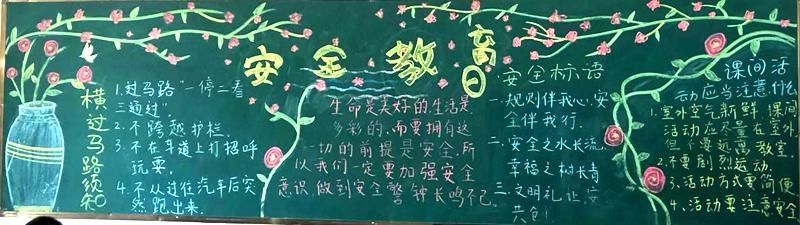 安全教育日
横过马路须知
1.过马路"一停二看
三通过"
2.不跨越护栏.
3.不在车道上打招呼
玩耍.
4.不从过往汽车后突
然跑出来.
生命是美好的生活是
多彩的.而要拥有这
一切的前提是安全.所
以我们一定要加强安全
意识做到安全警钟长鸣不已.
安全标语
一.规则伴我心.安
全伴我行.
二.安全之水长流,
幸福之树长青
三.文明礼让.安
共创!
课间活
动应当注意什么
1.室外空气新鲜.课间
活动应尽量在室外
但不要远离教室
2.不要剧烈运动.
3.活动方式要简便
4.活动要注意安全